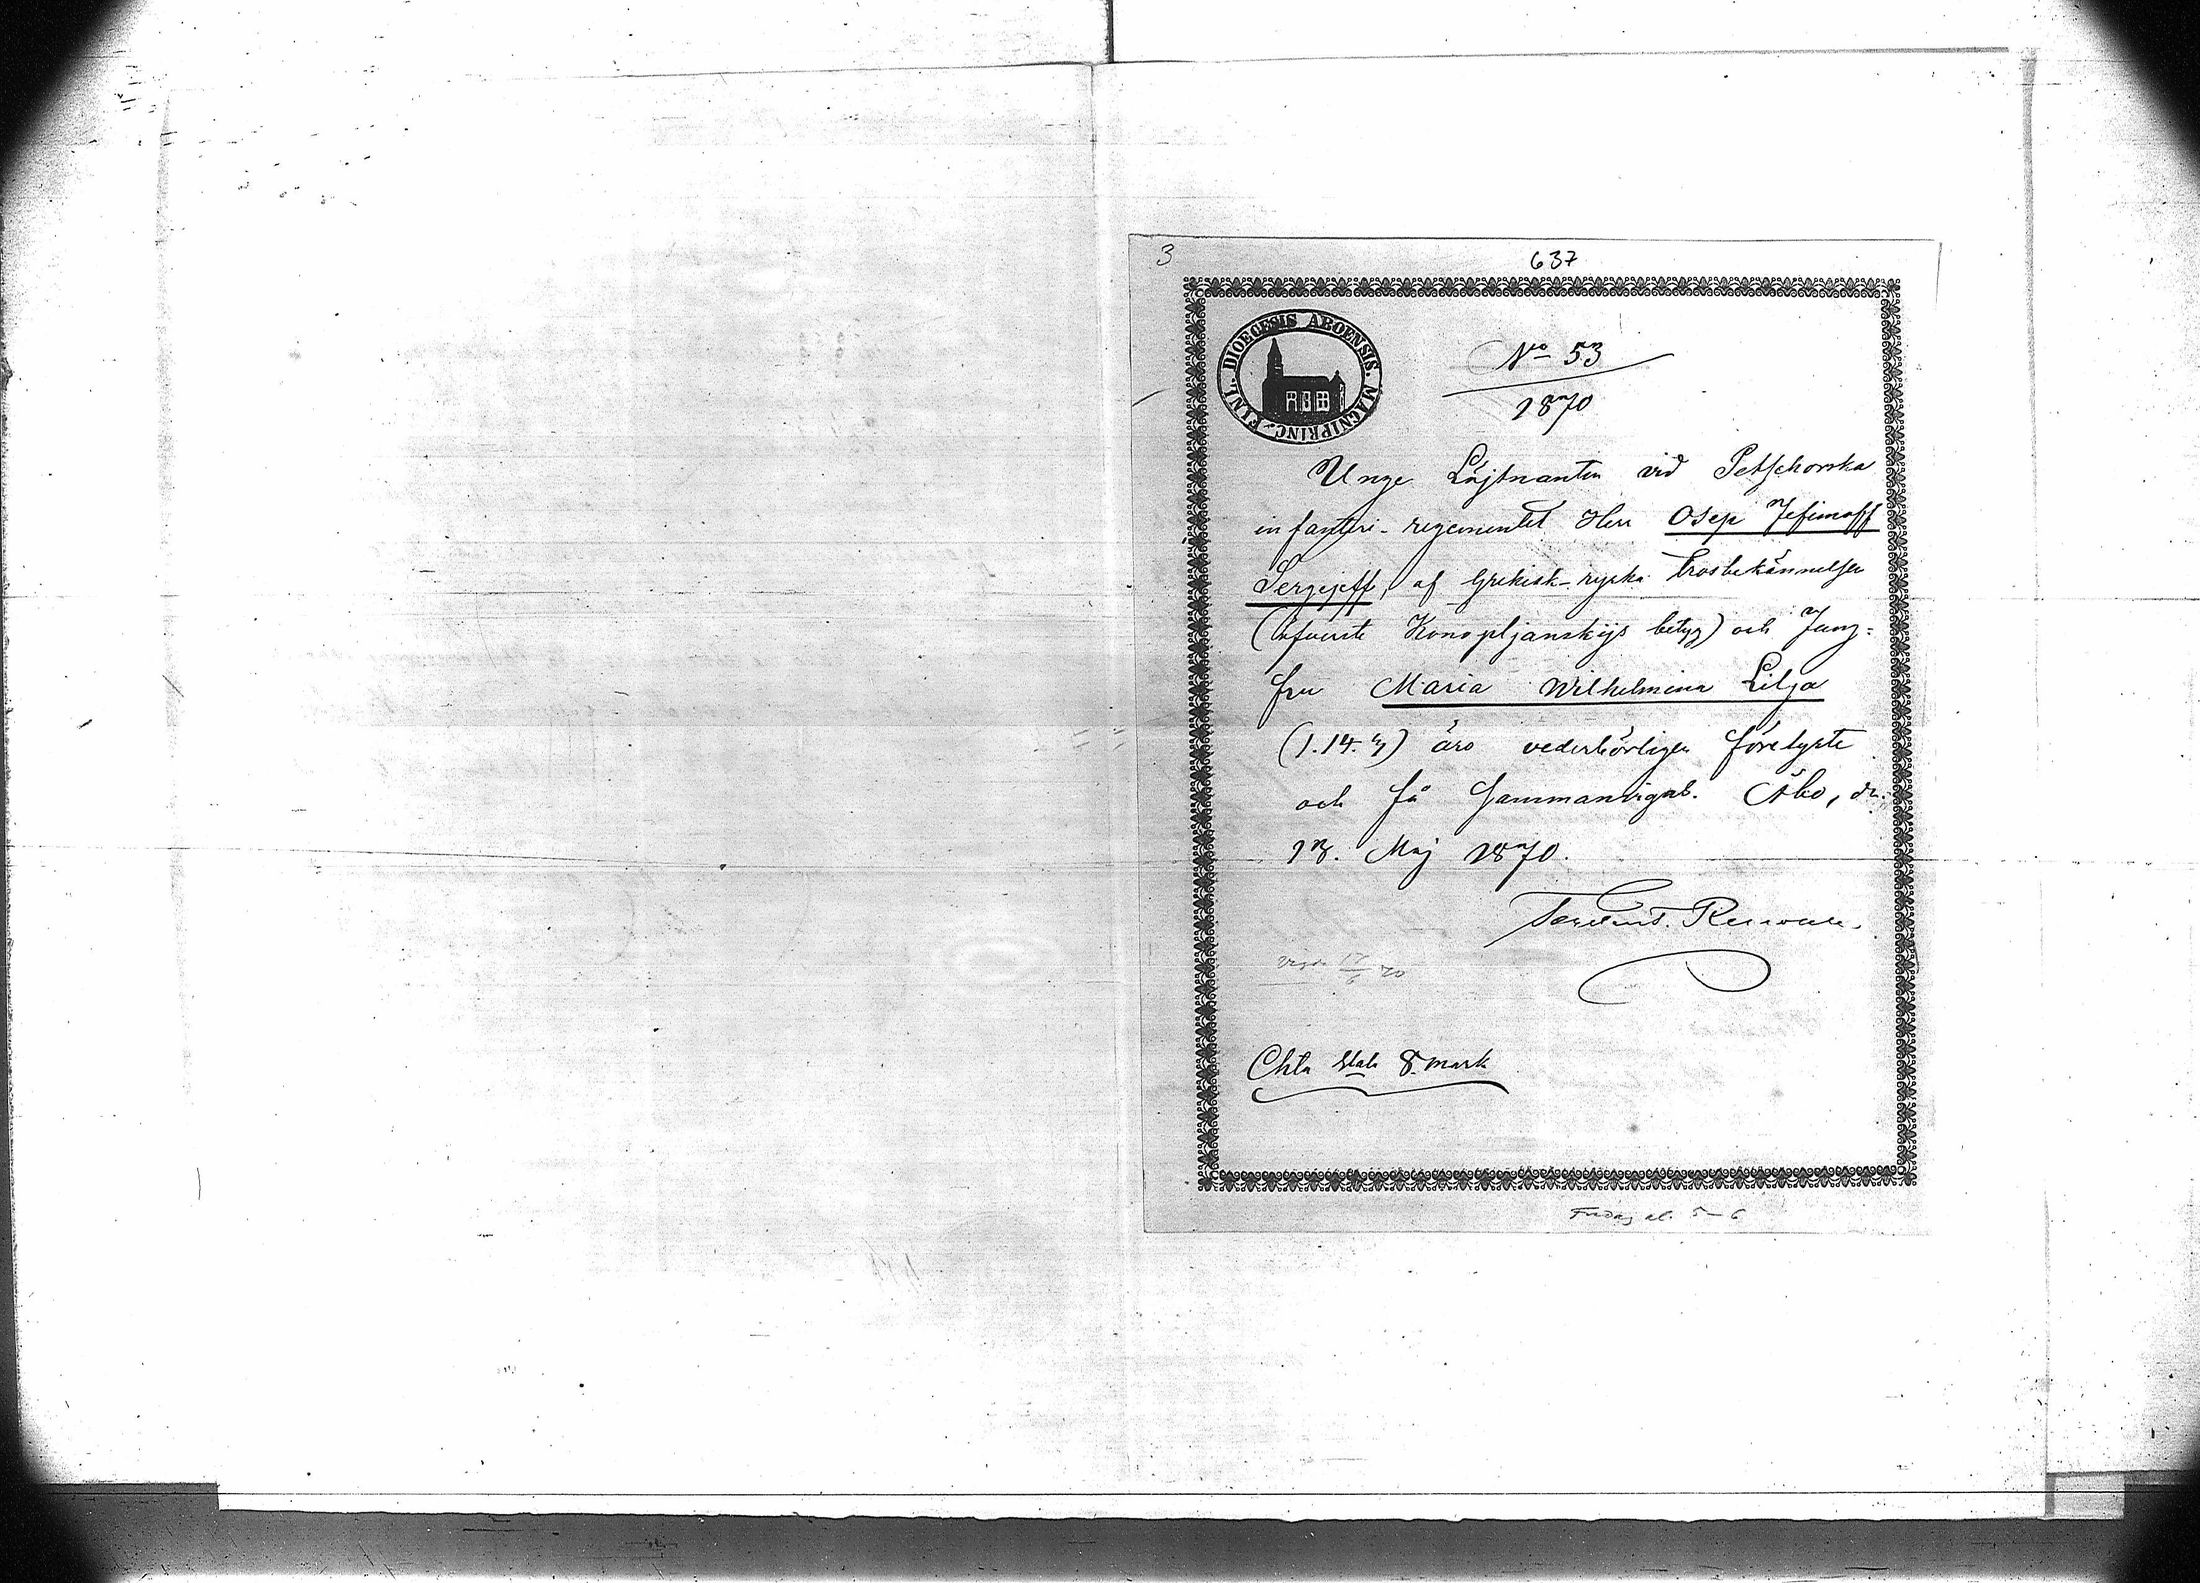 3
637
DIOECESIS ABOENSIS. MAGNIPRINC. FINL.
No 53
1870
Unge Löjtnanten vid Petschorska
infanteri-regementet Herr Osep Jefimoff
Sergejeff, af Grekisk-ryska trosbekännelsen
(öfverste Konopljanskijs betyg) och Jung=
fru Maria Wilhelmina Lilja
(1.14. ) äro vederbörligen förelyste
och få sammanvigas. Åbo, d.
13. Maj 1870.
17/6 70
Chta Slab 8 mark
Fredag kl. 5-6